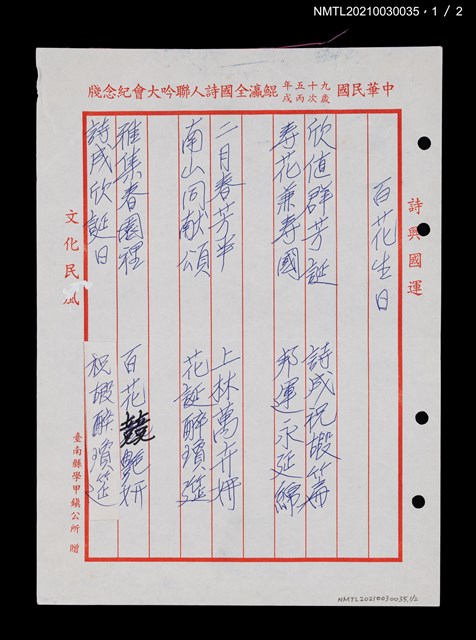 NMTL20210030035，1／2
中華民國九十五年歲次丙戌鯤瀛全國詩人聯吟大會紀念牋
詩興國運
百花生日
欣值群芳誕　詩成祝嘏篇
寿花兼寿國　邦運永延綿
二月春芳平　上林萬卉妍
南山同献頌　花誕醉瓊筵
雅集春園裡　百花競艷妍
詩成欣誕日　祝嘏醉瓊筵
文化民風
臺南縣學甲鎮公所　贈
NMTL20210030035,1/2